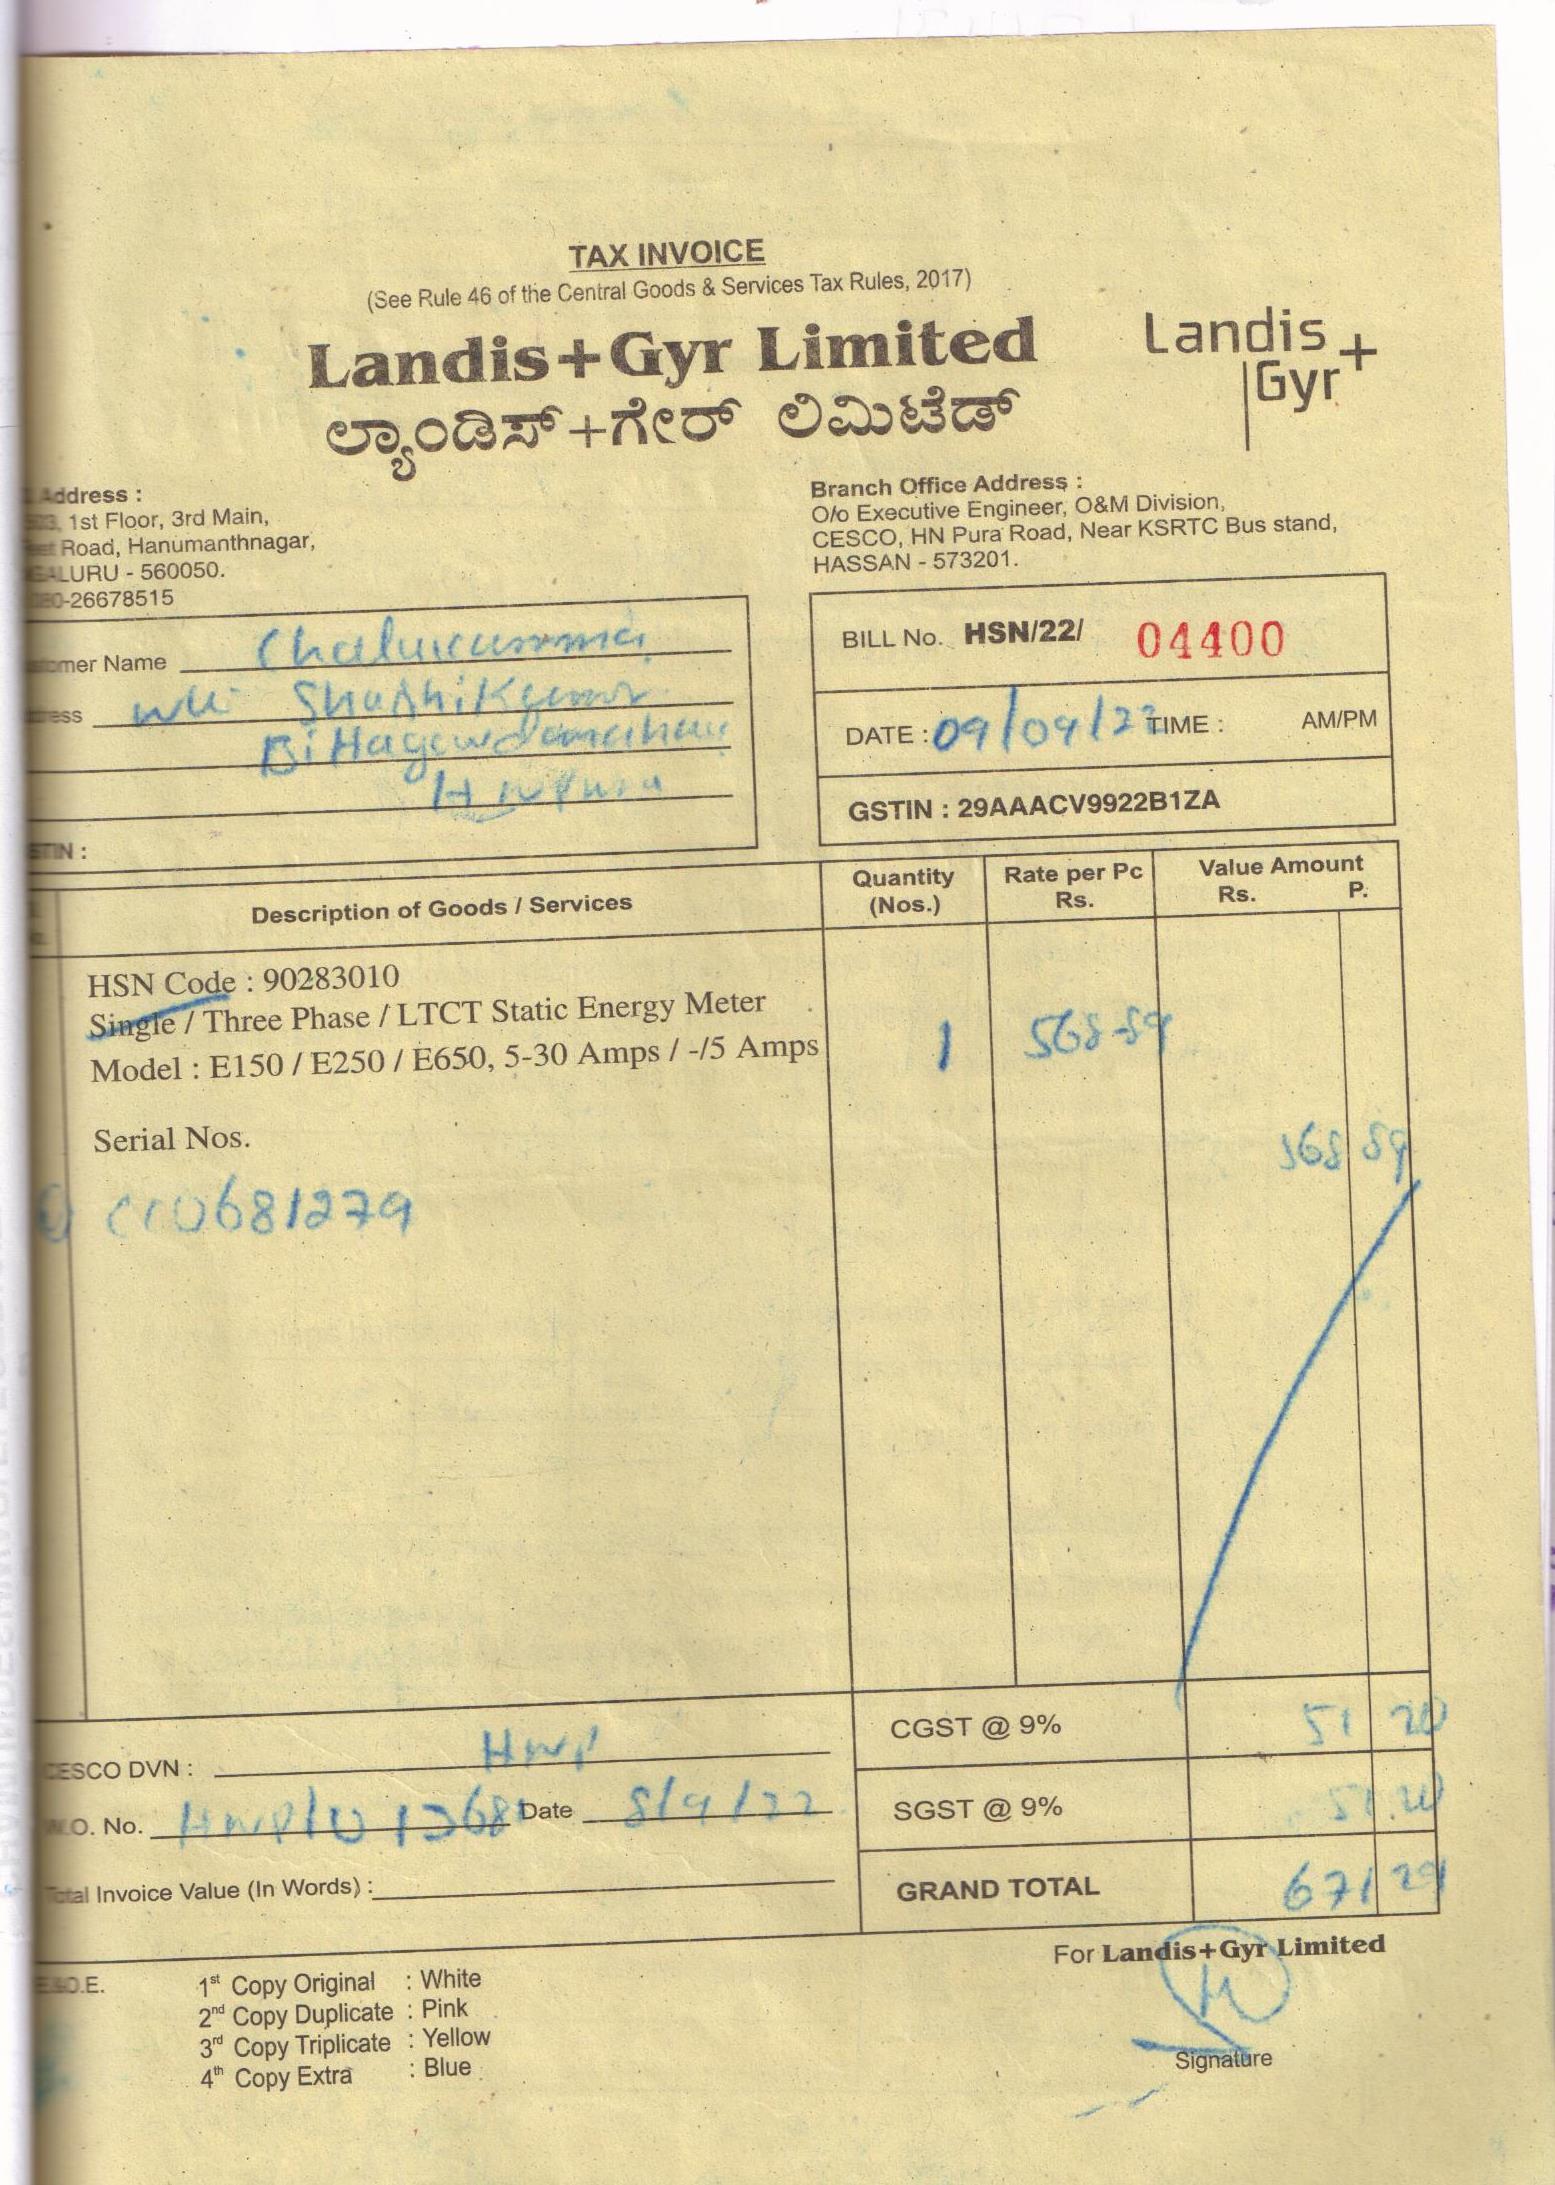 TAX INVOICE
(See Rule 46 of the Central Goods & Services Tax Rules, 2017)
Landis+Gyr Limited
ಲ್ಯಾಂಡಿಸ್+ಗೇರ್ ಲಿಮಿಟೆಡ್
Landis+
Gyr
Address :
1st Floor, 3rd Main,
Road, Hanumanthnagar,
ALURU - 560050.
-26678515
Branch Office Address :
O/o Executive Engineer, O&M Division,
CESCO, HN Pura Road, Near KSRTC Bus stand,
HASSAN - 573201.
omer Name
ess Shashikumar
STIN :
BILL No. HSN/22/ 04400
DATE : 09/09/22 TIME : AM/PM
GSTIN : 29AAACV9922B1ZA
Description of Goods / Services Quantity (Nos.) Rate per Pc Rs. Value Amount Rs. P.
HSN Code : 90283010
Single / Three Phase / LTCT Static Energy Meter
Model : E150 / E250 / E650, 5-30 Amps / -/5 Amps 1 568-89
568 89
Serial Nos.
681279
CGST @ 9% 51 20
CESCO DVN : HNP
SGST @ 9% 51.20
W.O. No. Date 8/9/22
Total Invoice Value (In Words) :
GRAND TOTAL 671 29
For Landis+Gyr Limited
E.&O.E.
1st Copy Original : White
2nd Copy Duplicate : Pink
3rd Copy Triplicate : Yellow
4th Copy Extra : Blue
Signature